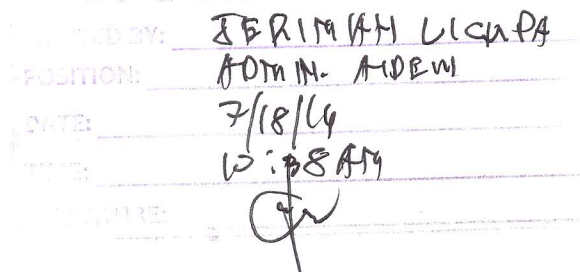 BY: JERIMAH LICUPA
POSITION: ADMIN. AIDE VI
DATE: 7/18/14
10:08 AM